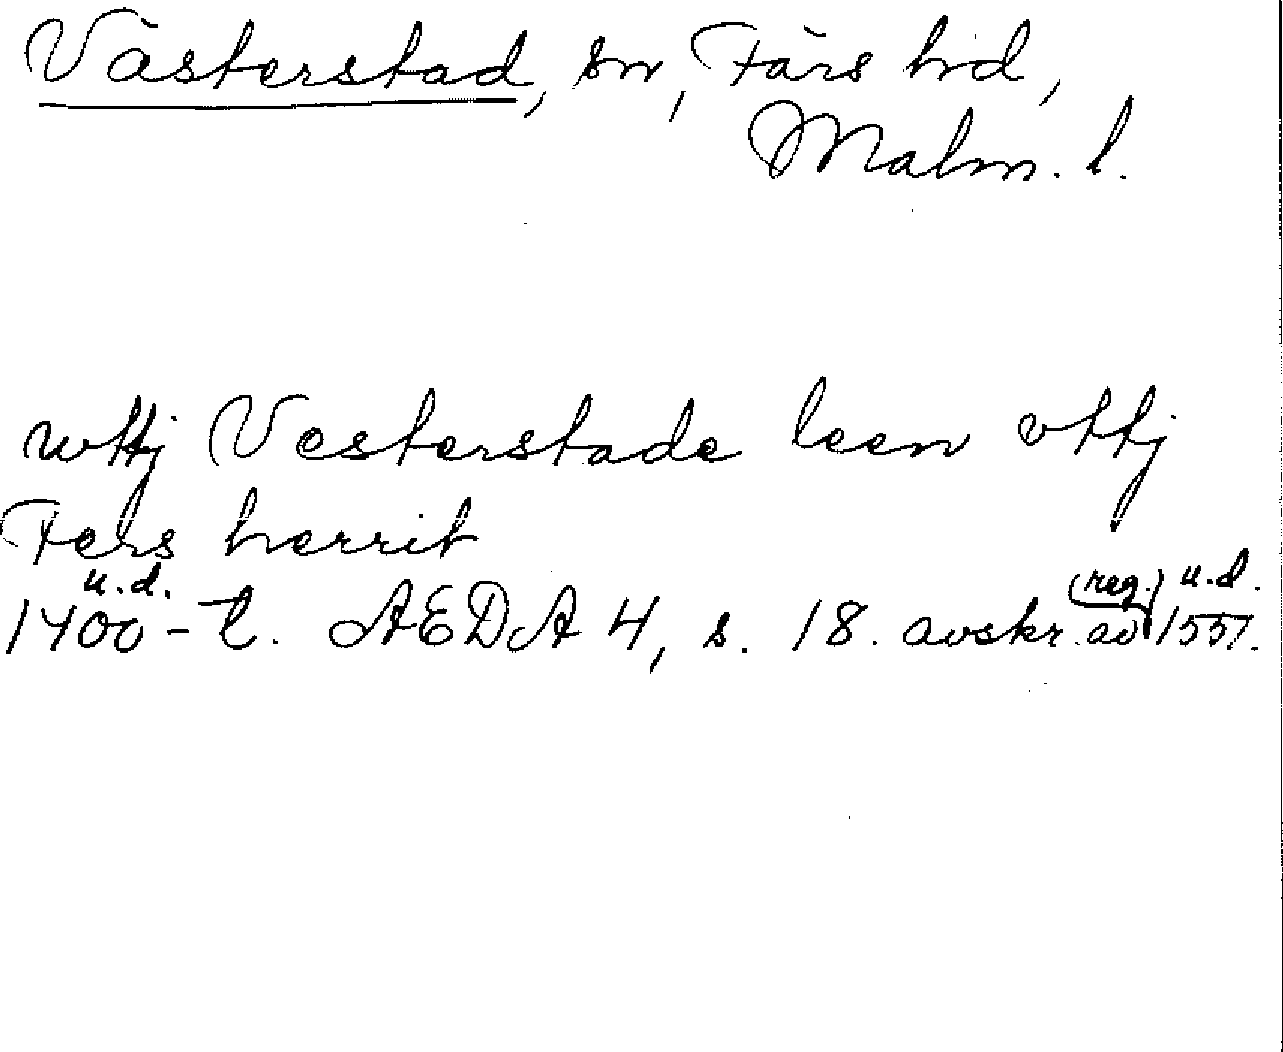 Västerstad, sn, Färs hd,
Malm. l.
wttj Vesterstade leen vttj
Fers herrit
u.d.
1400-t. AEDA 4, s. 18. avskr. av (reg.) u.d. 1551.